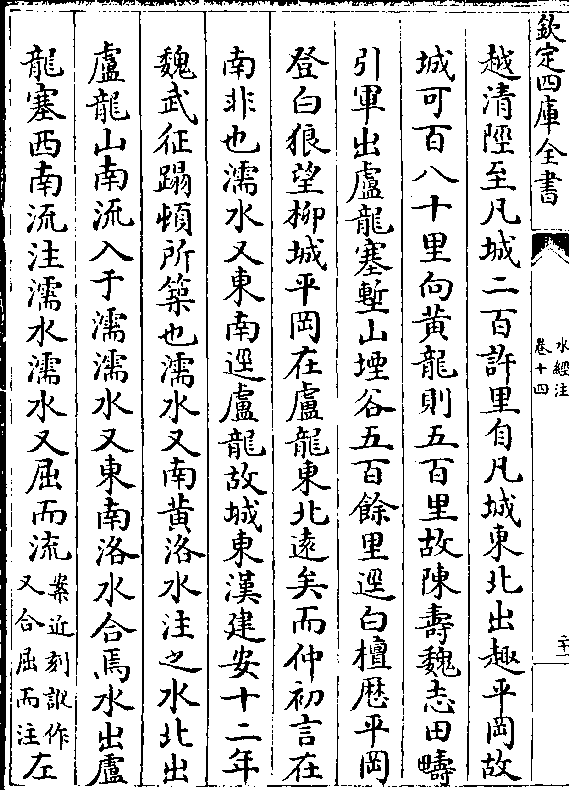 欽定四庫全書
水經注
卷十四
二十一
越清陘至凡城二百許里自凡城東北出趣平岡故
城可百八十里向黃龍則五百里故陳壽魏志田疇
引軍出盧龍塞塹山堙谷五百餘里逕白檀歴平岡
登白狼望柳城平岡在盧龍東北遠矣而仲初言在
南非也濡水又東南逕盧龍故城東漢建安十二年
魏武征蹋頓所築也濡水又南黃洛水注之水北出
盧龍山南流入于濡濡水又東南洛水合焉水出盧
龍塞西南流注濡水濡水又屈而流案近刻訛作又合屈而注左